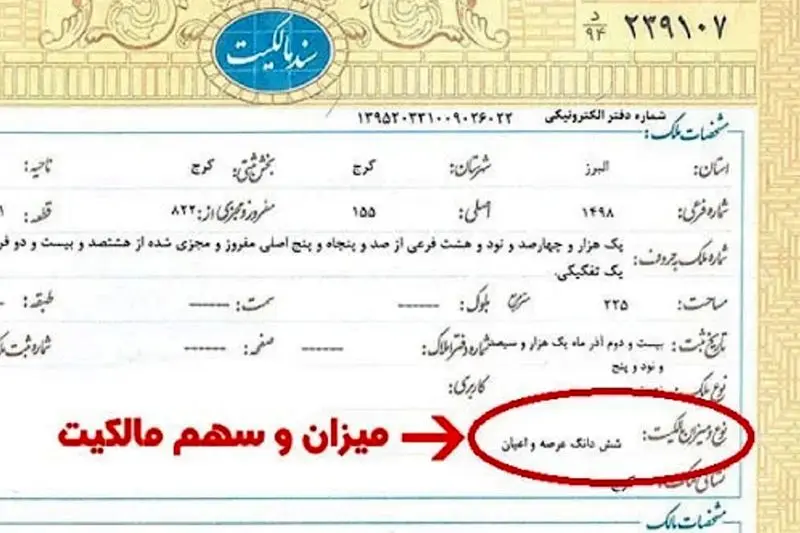 ۲۳۹۱۰۷ د ۹۴
سند مالکیت
شماره دفتر الکترونیکی ۱۳۹۵۲۰۳۳۱۰۰۹۰۲۶۰۲۲
مشخصات ملک:
استان: البرز شهرستان: کرج بخش ثبتی: کرج ناحیه:
شماره فرعی: ۱۴۹۸ اصلی: ۱۵۵ مفروز و مجزی از: ۸۲۲ قطعه: ۱
شماره ملک به حروف: یک هزار و چهارصد و نود و هشت فرعی از صد و پنجاه و پنج اصلی مفروز و مجزی شده از هشتصد و بیست و دو فر
یک تفکیکی.
مساحت: ۲۲۵ مترمربع بلوک: ------ سمت: ------ طبقه: --
تاریخ ثبت: بیست و دوم آذر ماه یک هزار و سیصد شماره دفتر املاک: ------ صفحه: ------ شماره ثبت ملک
و نود و پنج
نوع ملک: کاربری:
نوع و میزان مالکیت: شش دانگ عرصه و اعیان
میزان و سهم مالکیت
نشانی ملک: کرج
مشخصات مالک